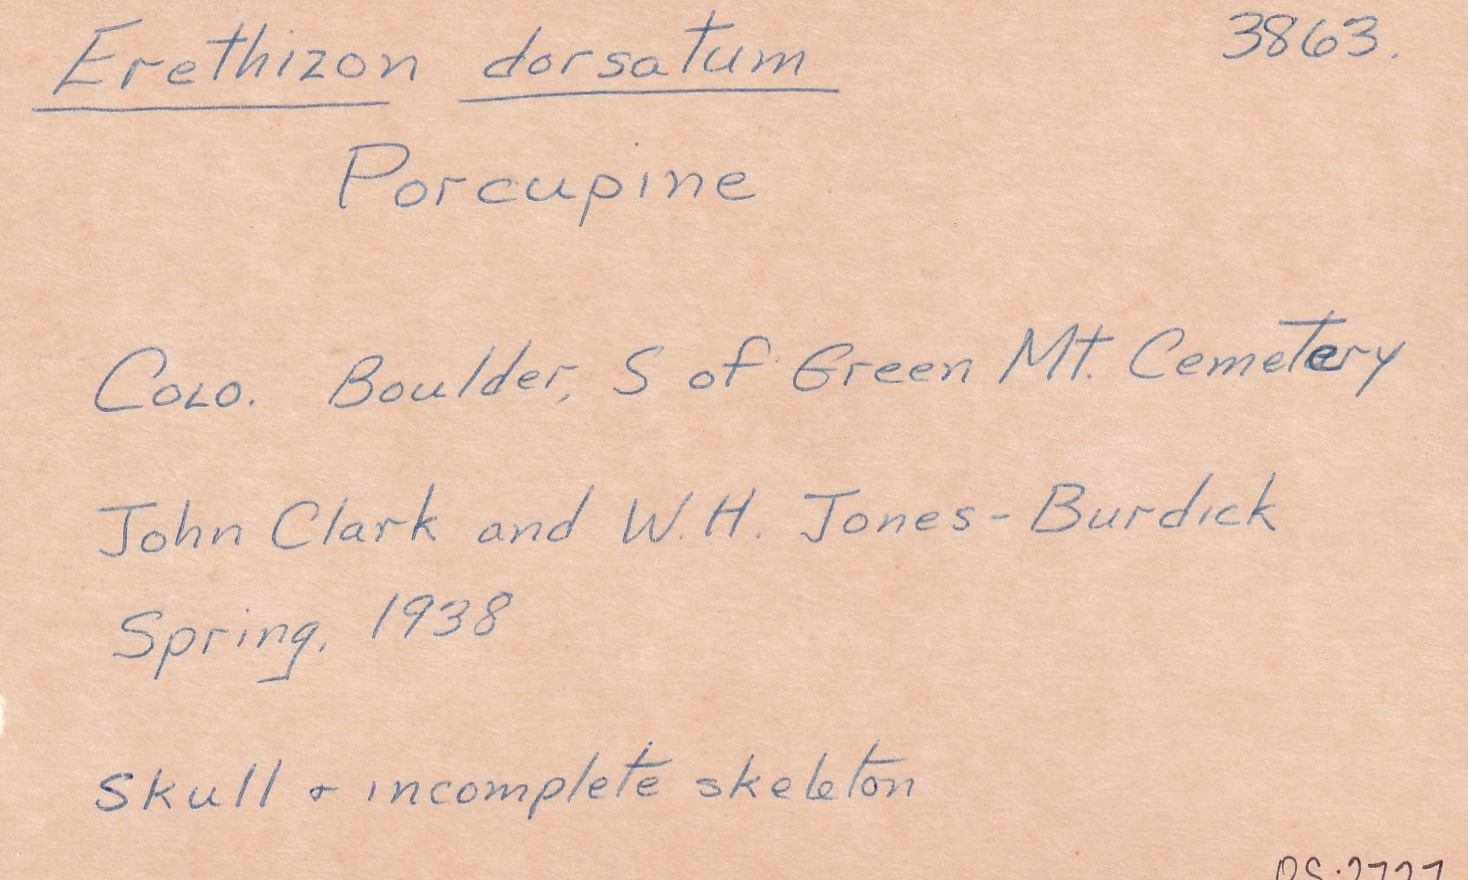 Erethizon dorsatum 3863.
Porcupine
Colo. Boulder, S of Green Mt. Cemetery
John Clark and W.H. Jones-Burdick
Spring, 1938
Skull & incomplete skeleton